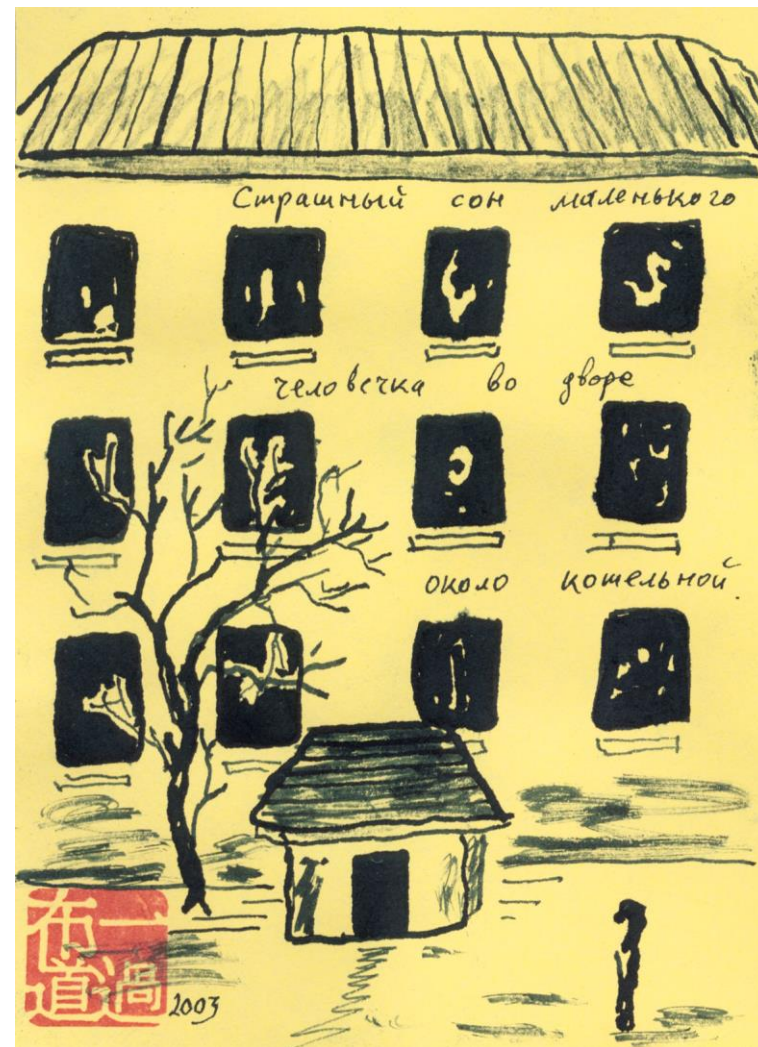 Страшный сон маленького
человечка во дворе
около котельной.
2003